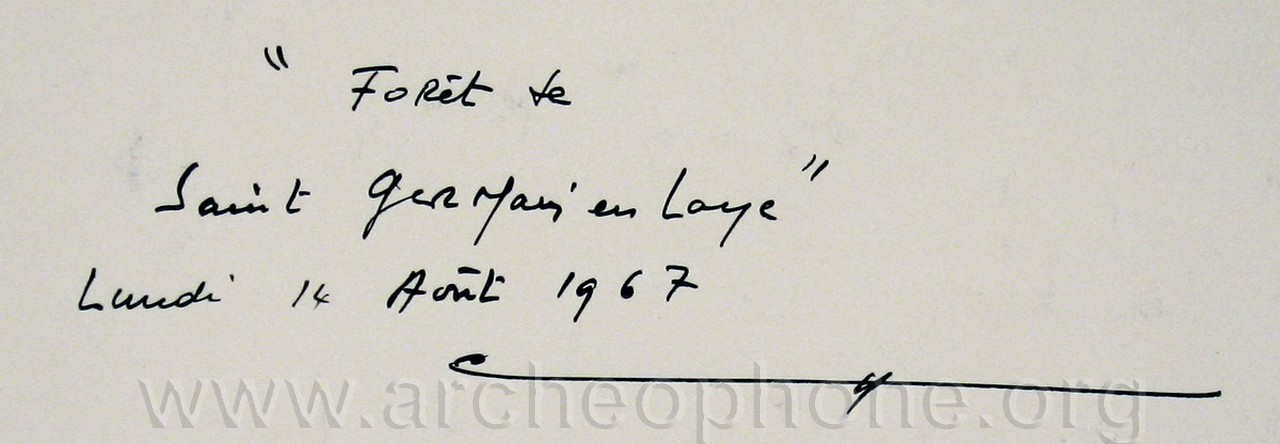 " Forêt de
Saint Germain en Laye "
Lundi 14 Août 1967
www.archeophone.org